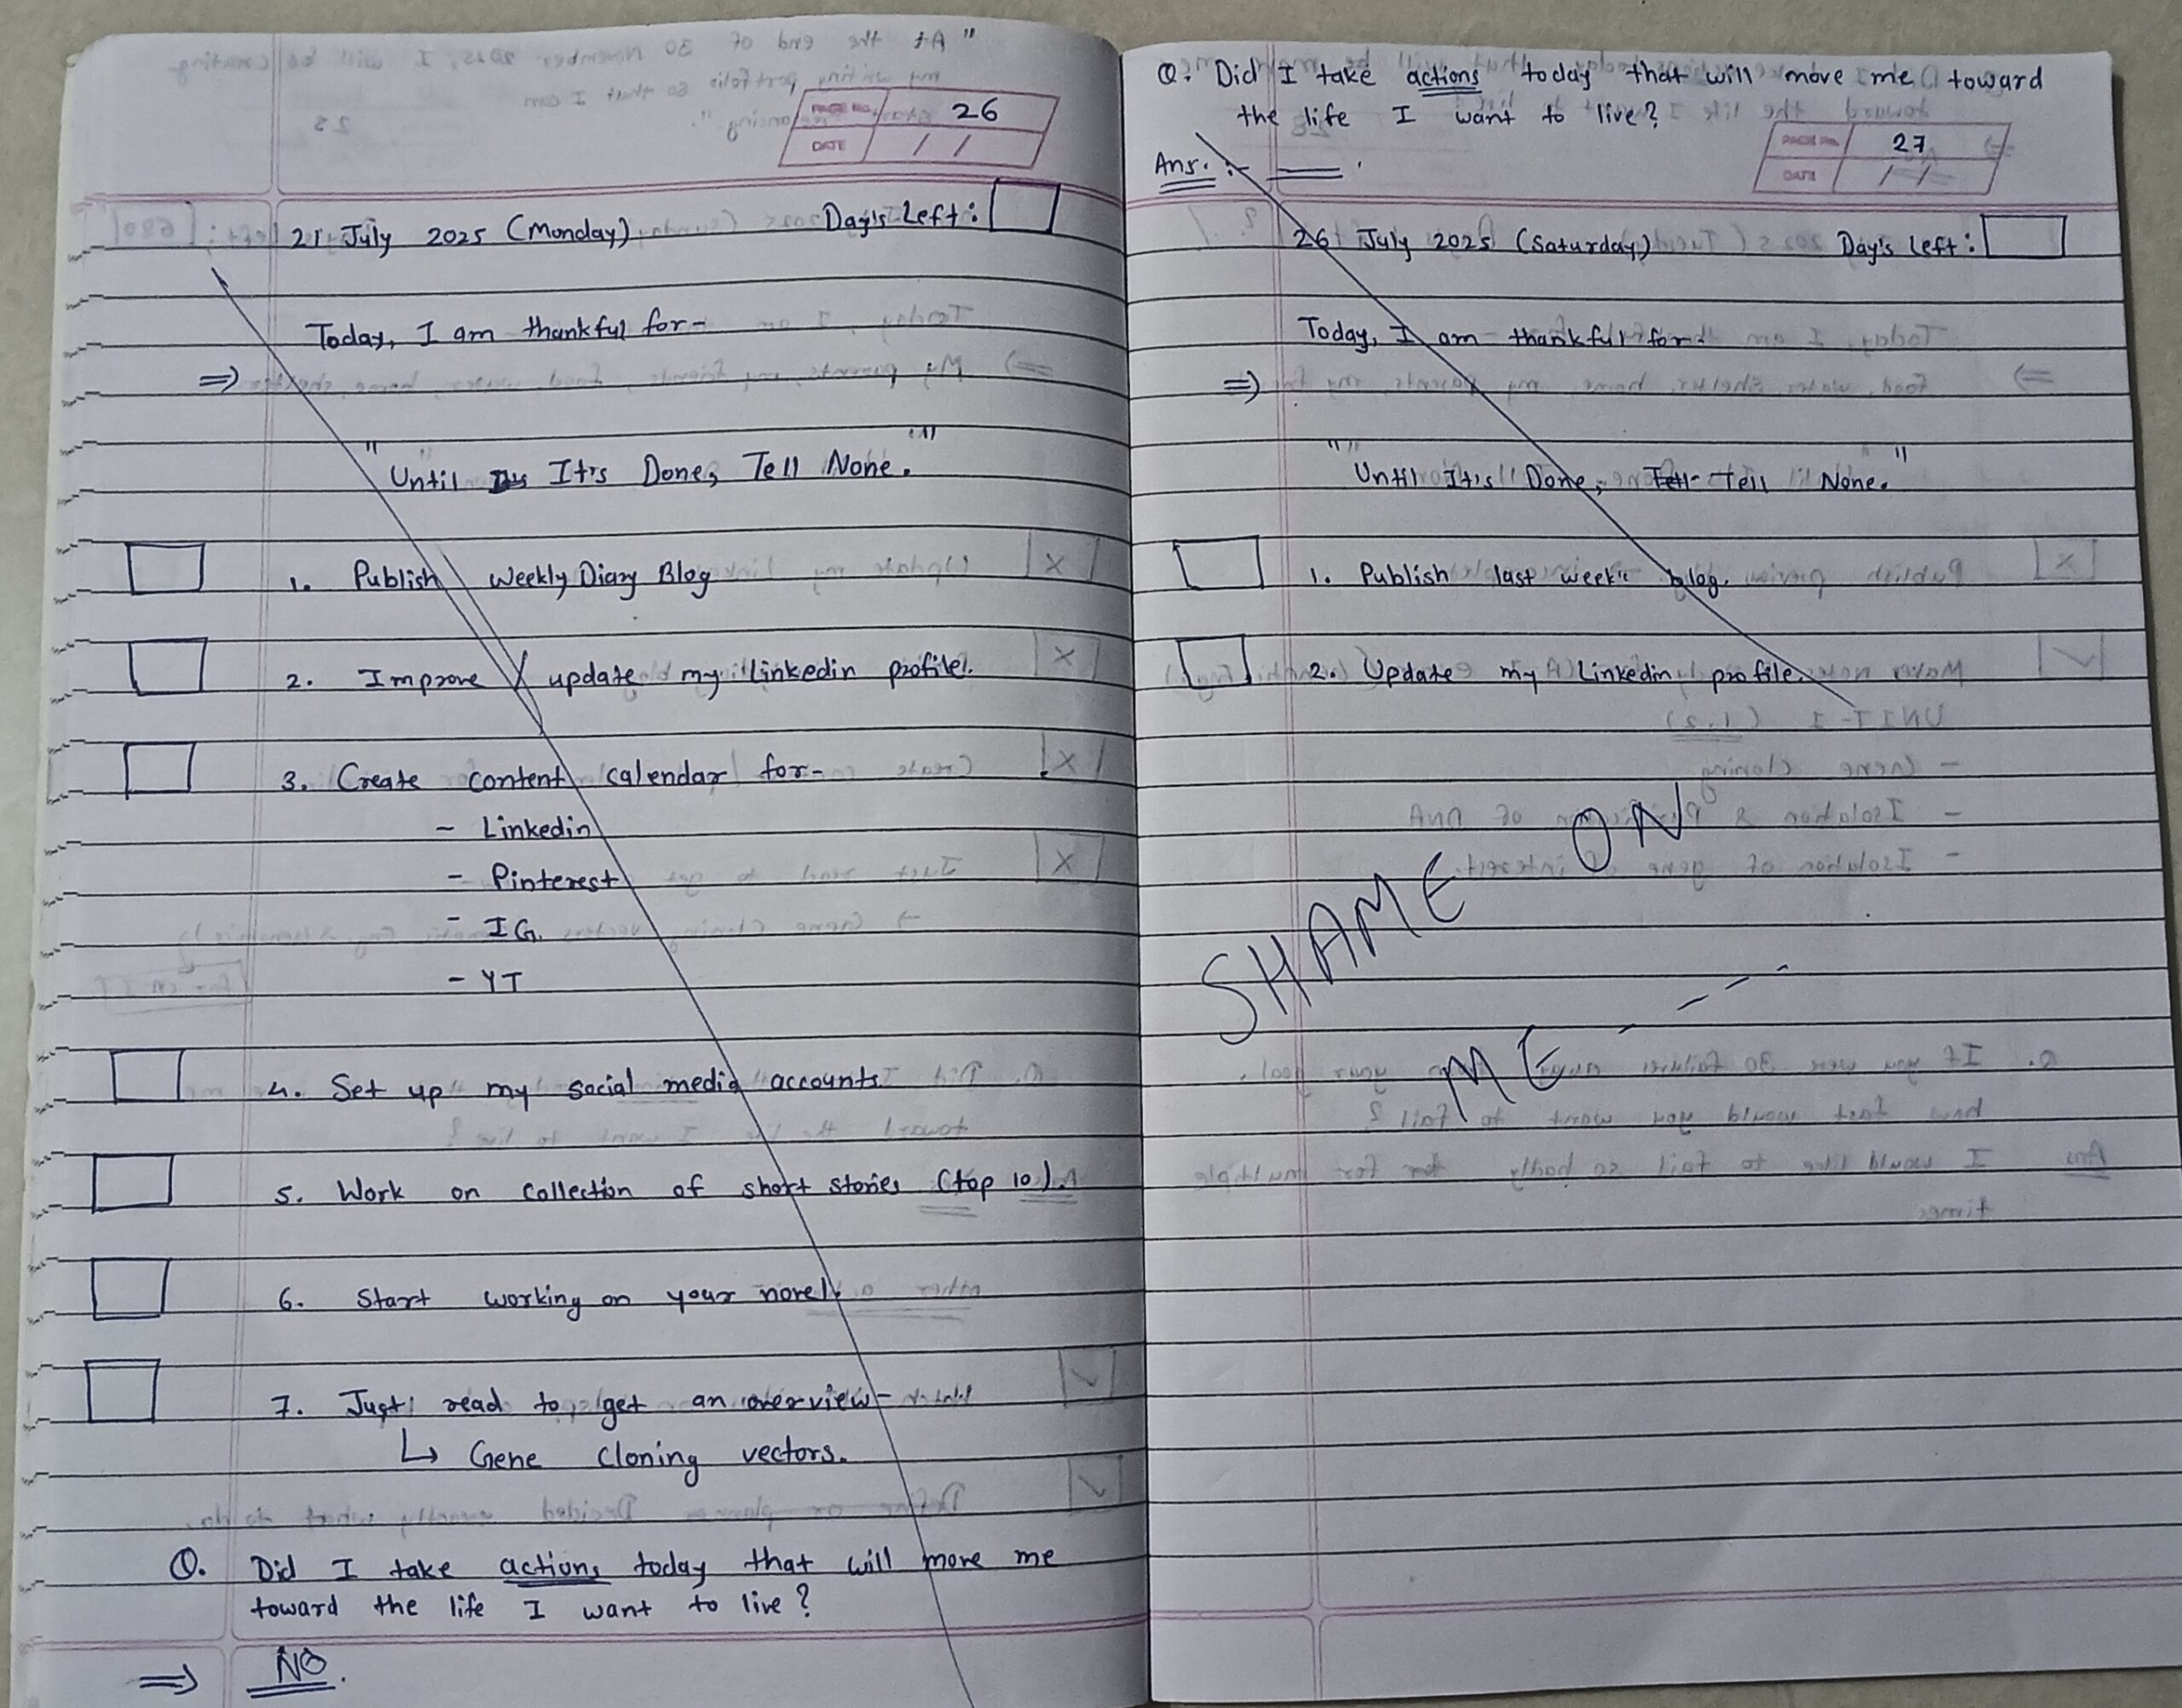 PAGE NO. 26
DATE / /
21 July 2025 (Monday) Day's Left:
Today, I am thankful for-
⇒
"Until It's Done, Tell None."
1. Publish Weekly Diary Blog
2. Improve / update my linkedin profile.
3. Create content calendar for-
- Linkedin
- Pinterest
- IG.
- YT
4. Set up my social media accounts.
5. Work on collection of short stories (top 10).
6. Start working on your novel.
7. Just read to get an overview-
↳ Gene cloning vectors.
Q. Did I take actions today that will move me
toward the life I want to live?
⇒ NO.
Q. Did I take actions today that will move me toward
the life I want to live?
PAGE NO. 27
DATE / /
Ans. :- .
26 July 2025 (Saturday) Day's Left:
Today, I am thankful for-
⇒
"Until It's Done, Tell Tell None."
1. Publish last week's blog.
2. Update my Linkedin profile.
SHAME ON
ME ---